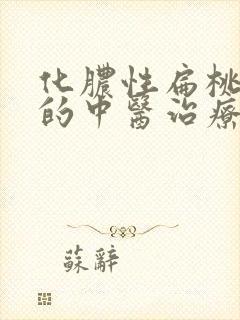 化膿性扁桃
的中醫治療
蘇辭